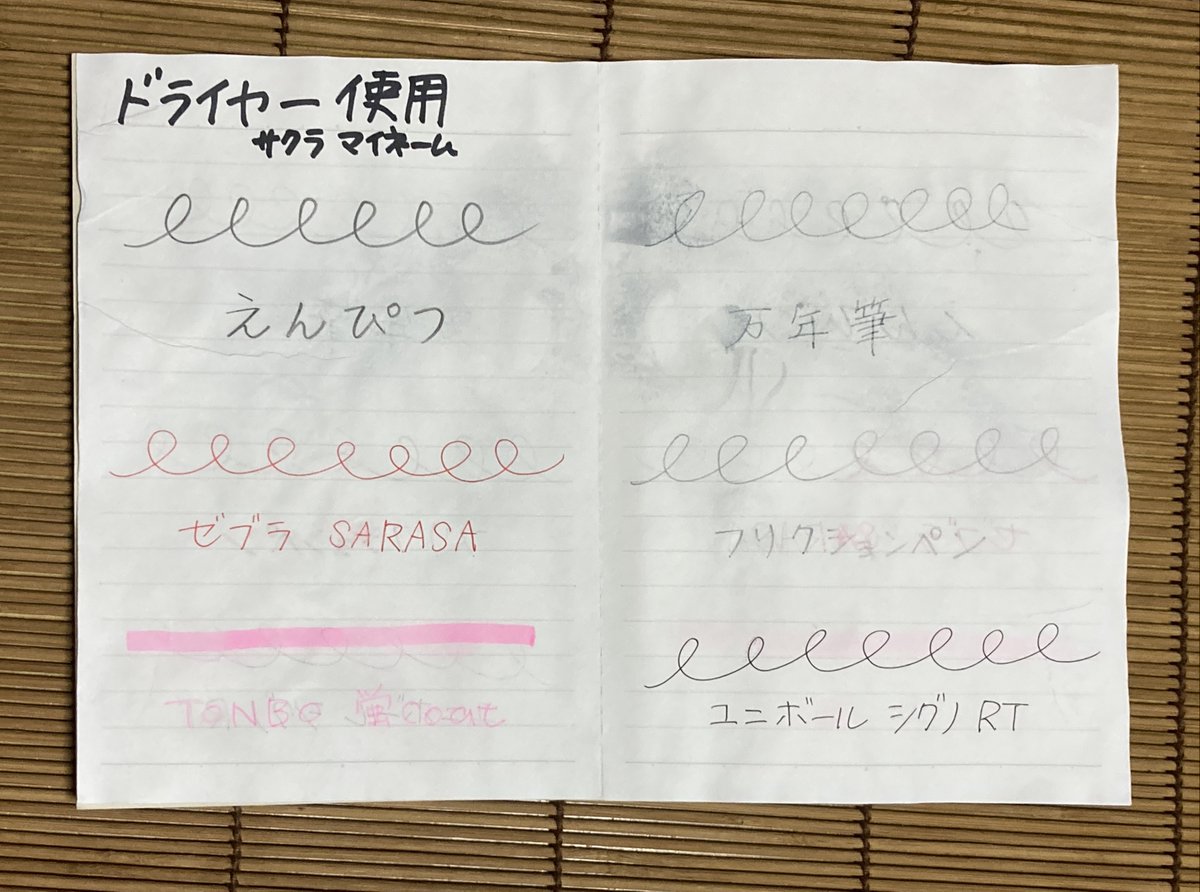 ドライヤー使用
サクラ マイネーム
えんぴつ
ゼブラ SARASA
TONBO 蛍coat
万年筆
フリクションペン
ユニボール シグノ RT